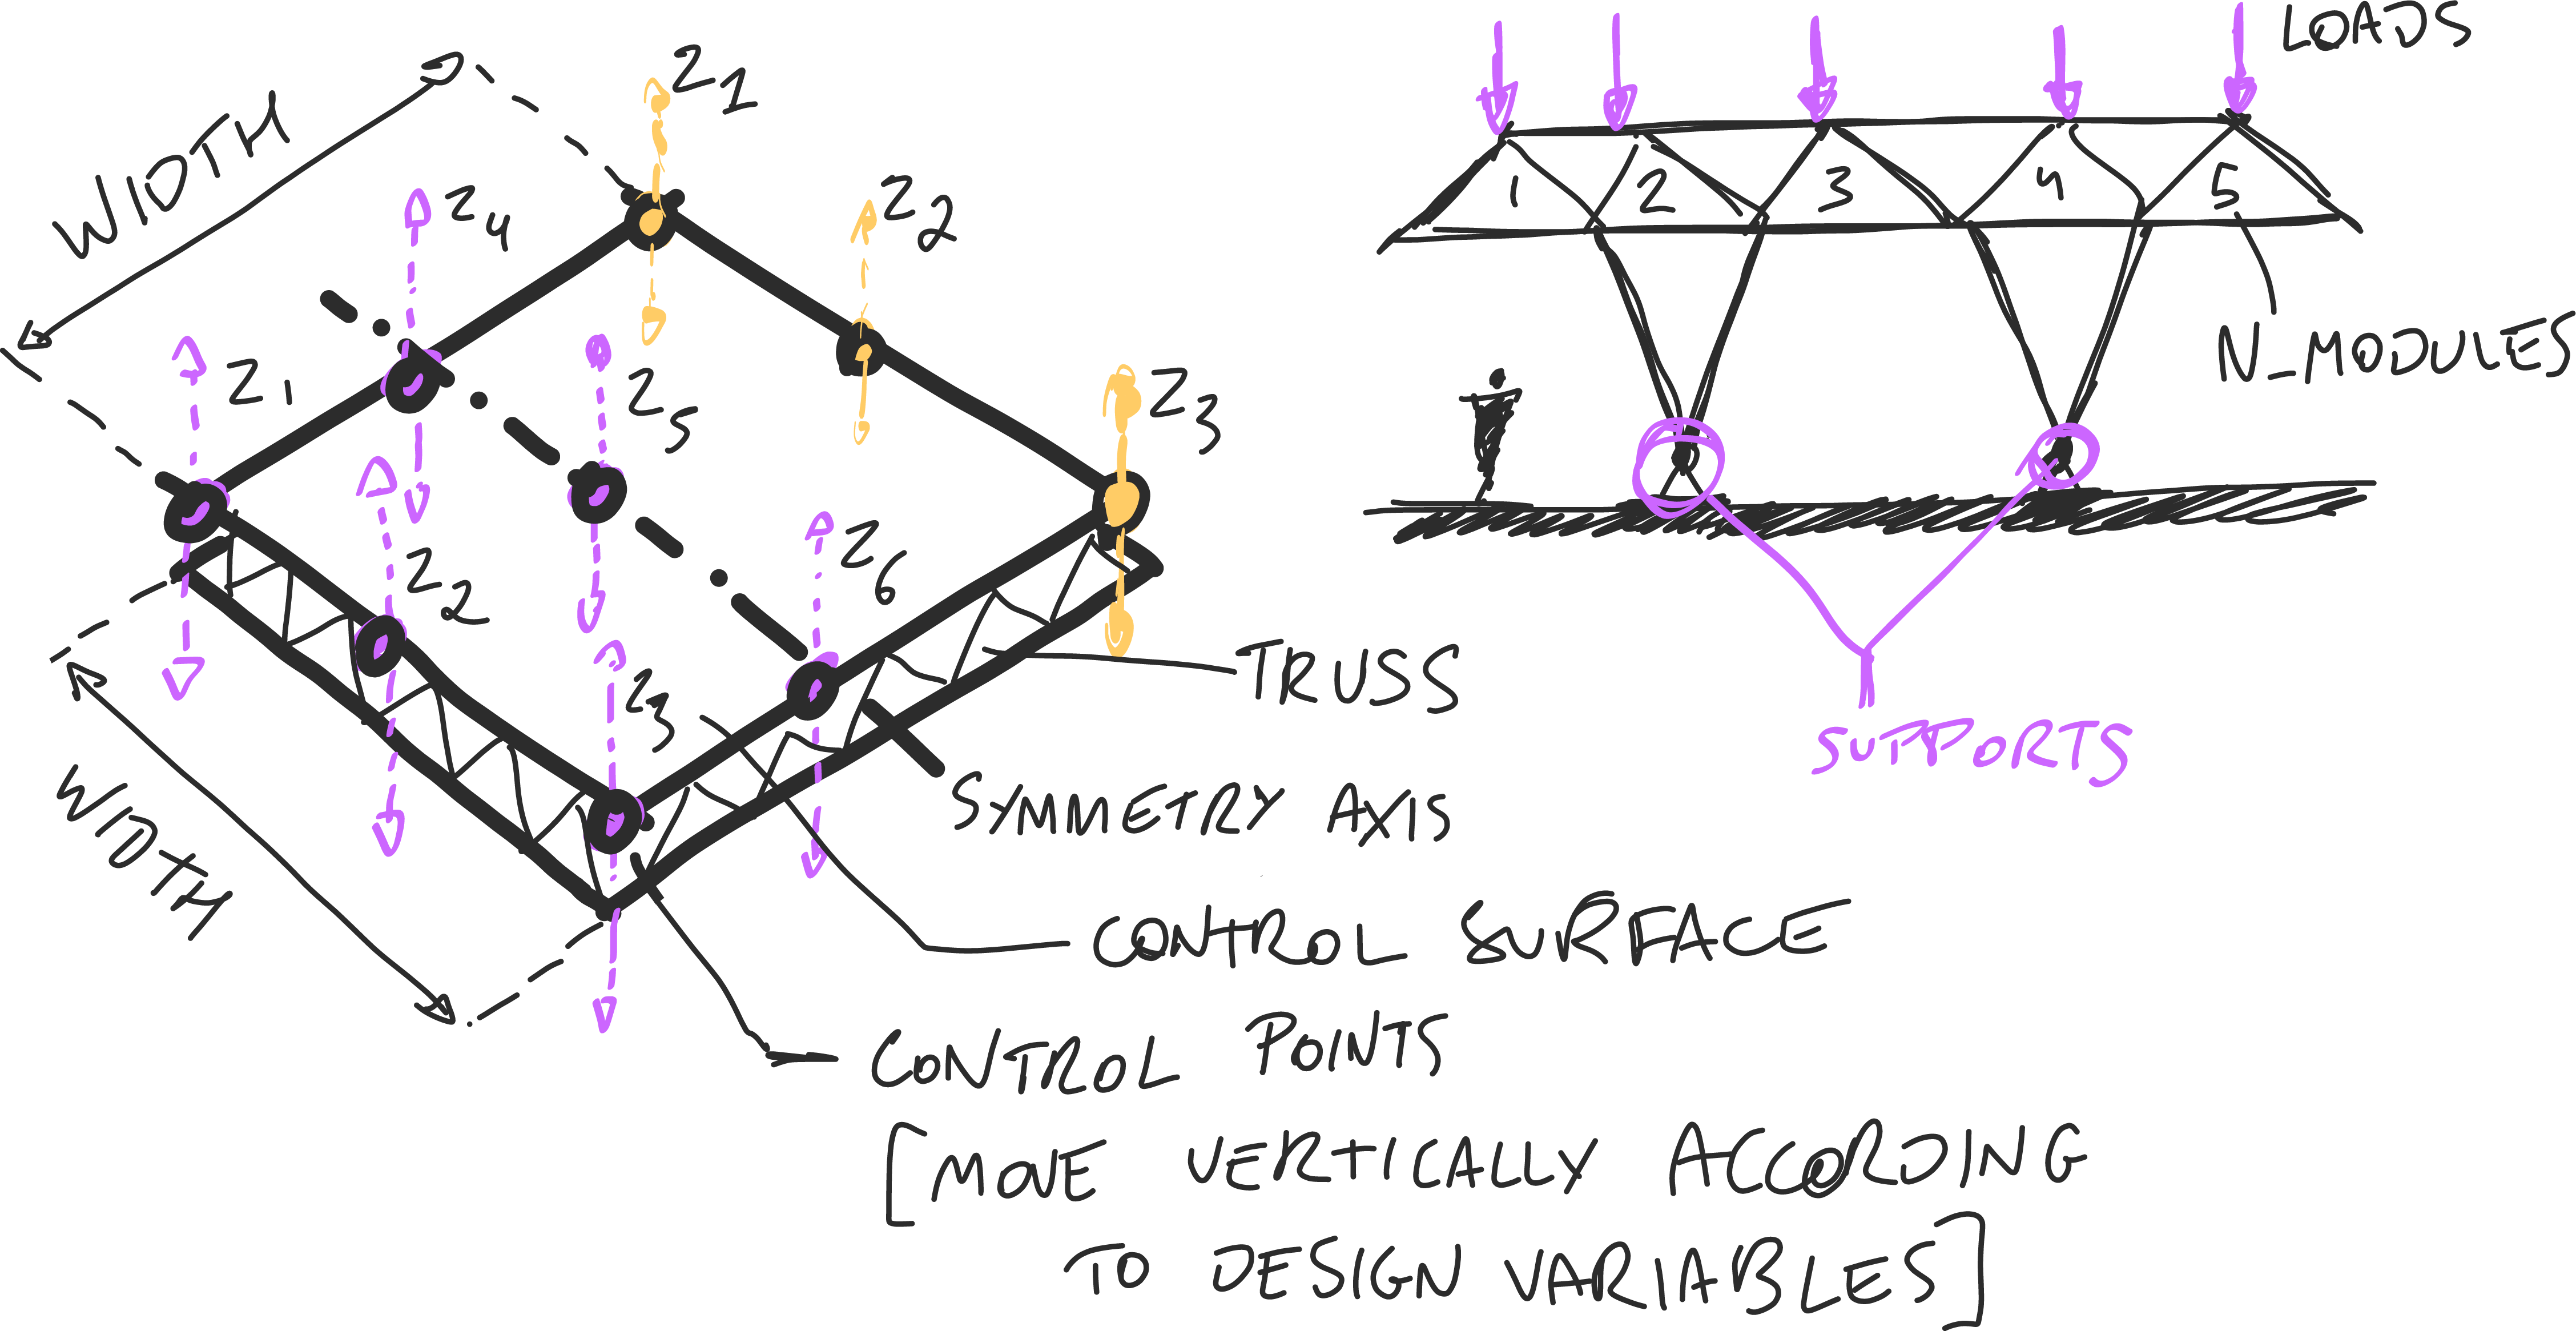 WIDTH
Z1
Z4
Z2
Z1
Z5
Z3
Z2
Z6
Z3
WIDTH
TRUSS
SYMMETRY AXIS
CONTROL SURFACE
CONTROL POINTS
[MOVE VERTICALLY ACCORDING
TO DESIGN VARIABLES]
LOADS
1 2 3 4 5
N_MODULES
SUPPORTS